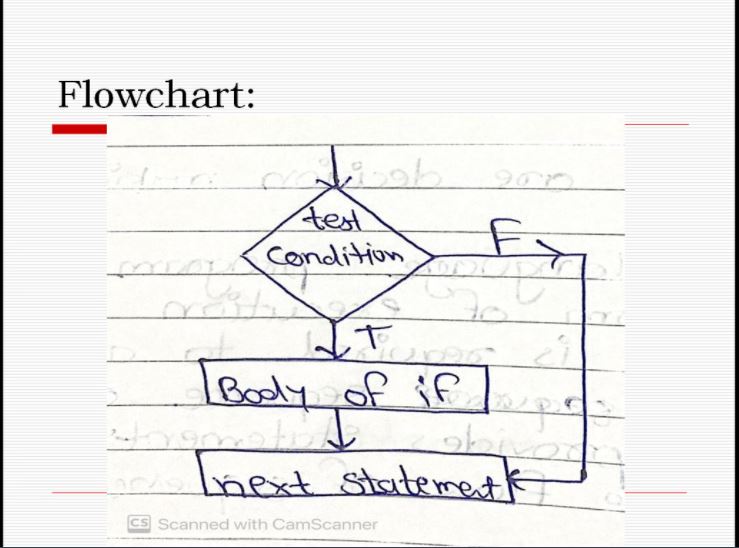 Flowchart:
test
Condition
F
T
Body of if
next statement
CS Scanned with CamScanner